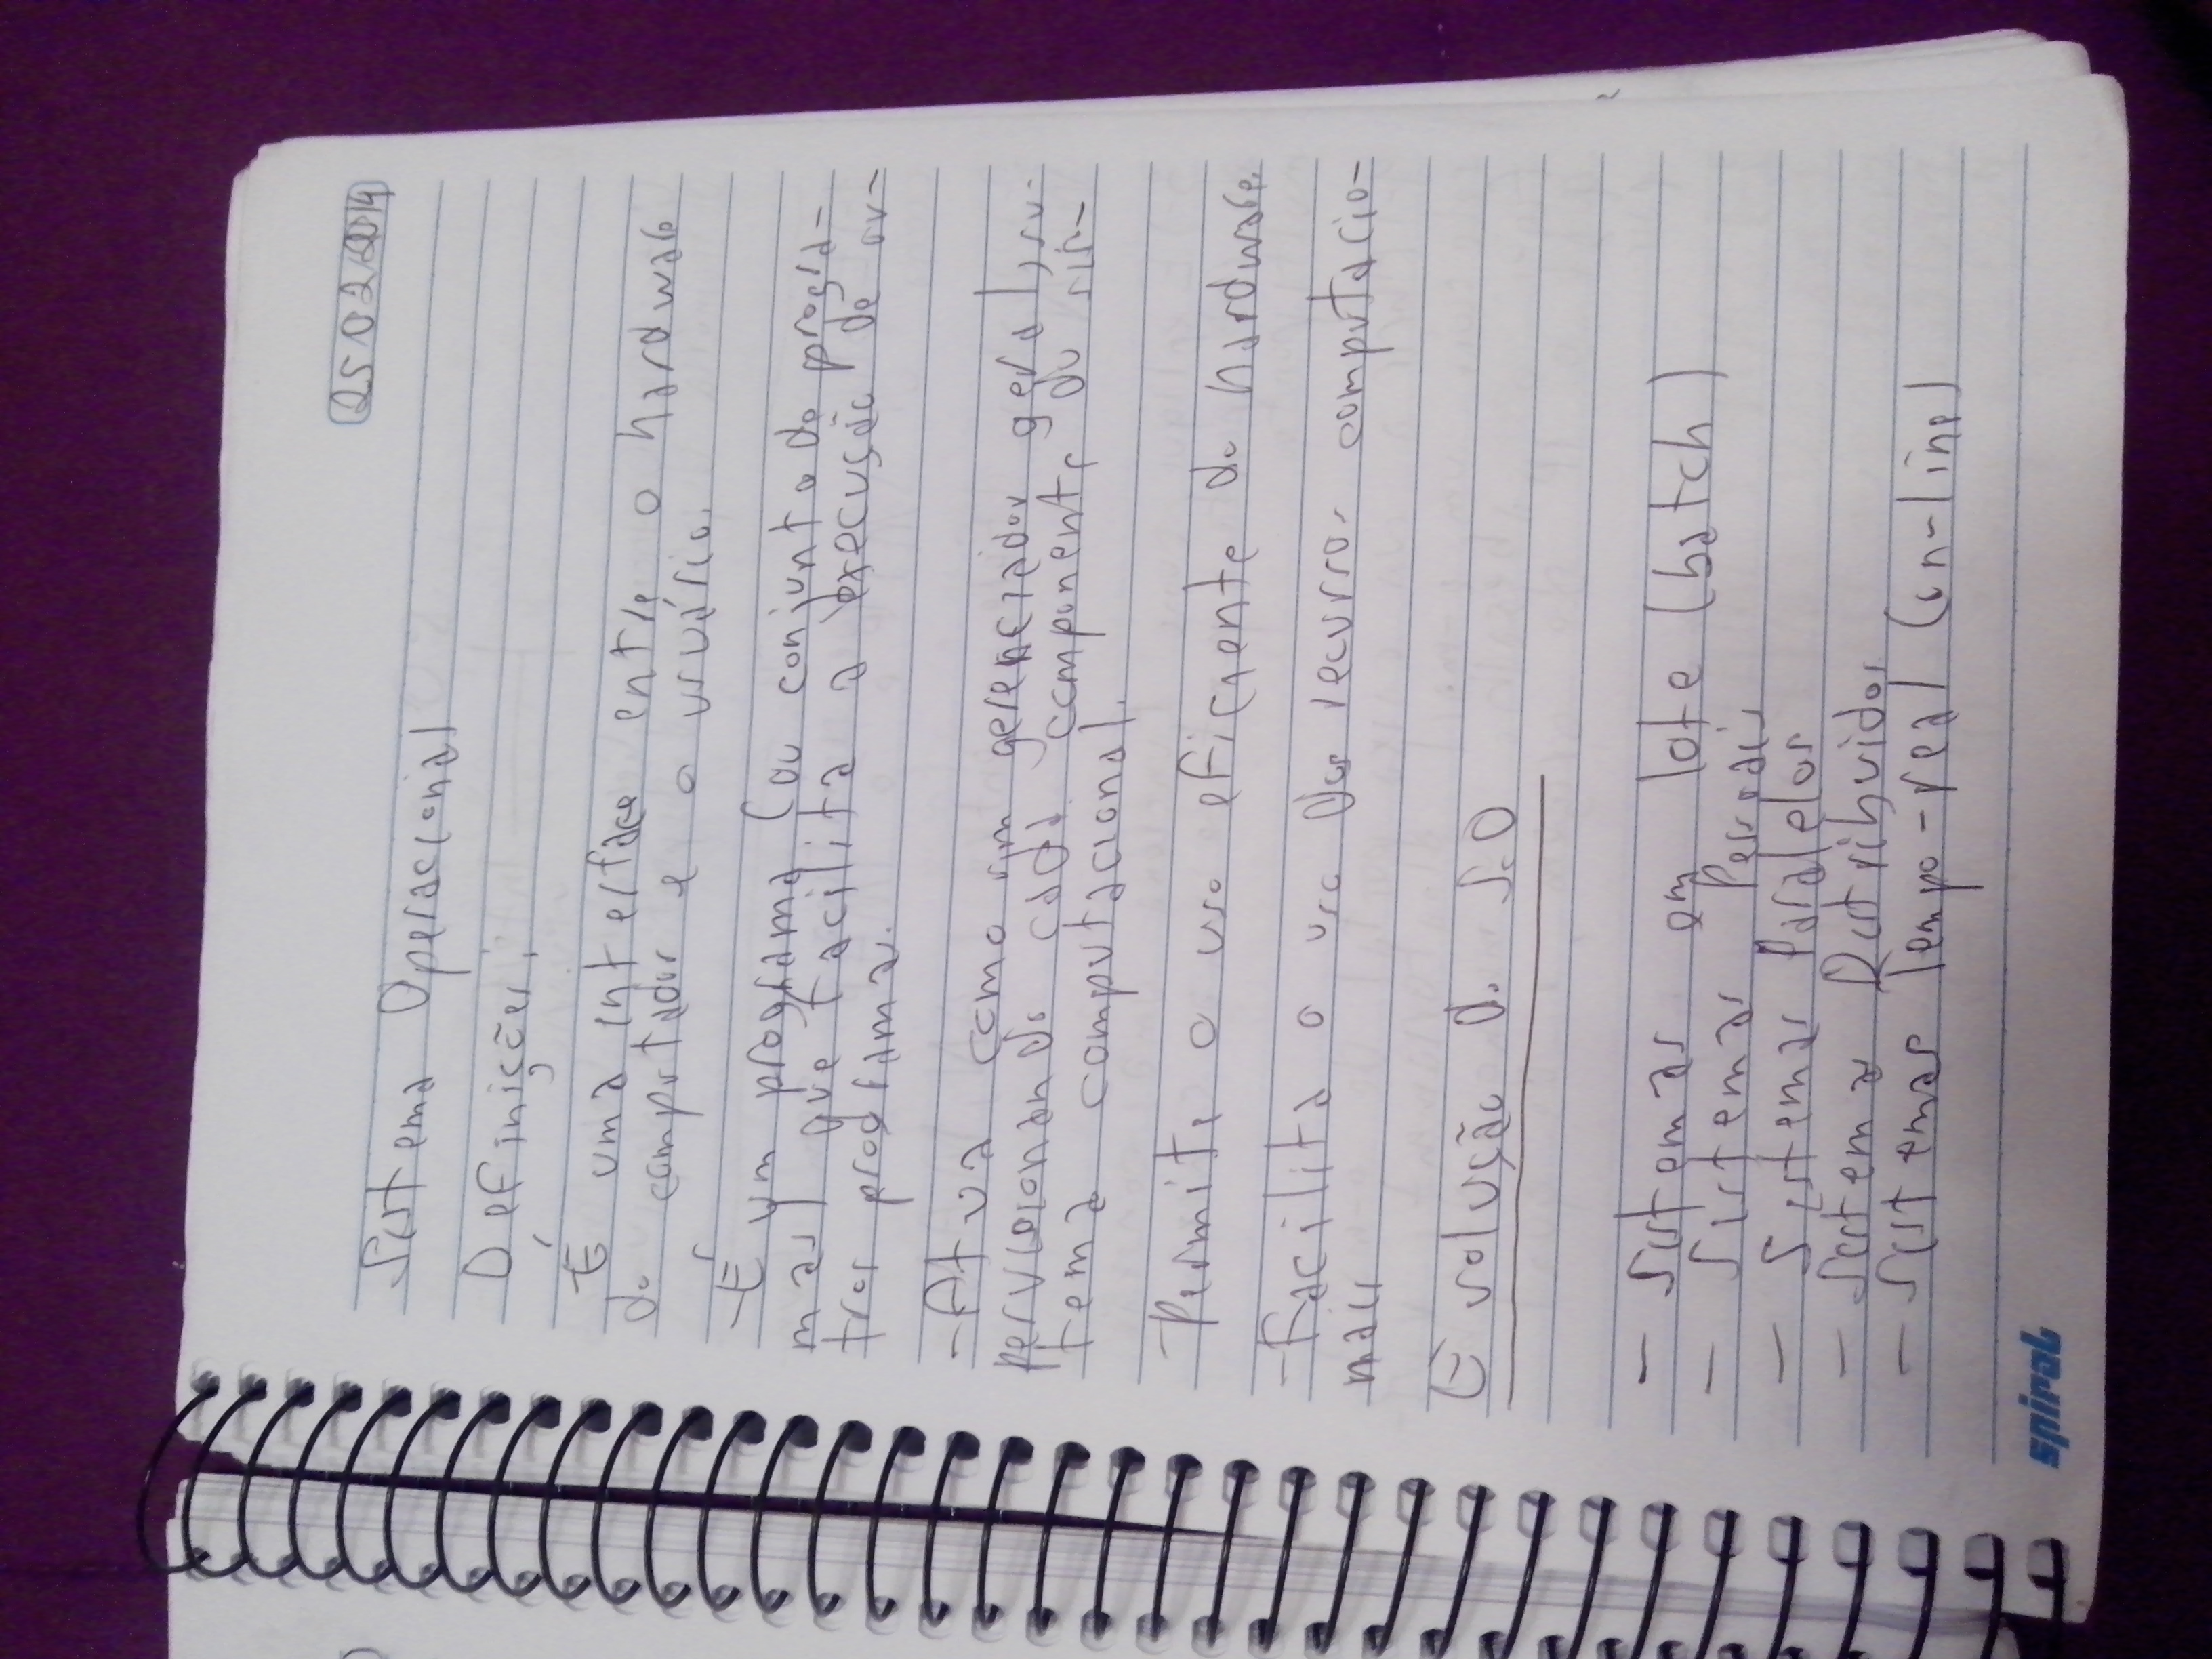 25 02 2014
Sistema Operacional
Definições:
É uma interface entre o hardware
do computador e o usuário.
-É um programa (ou conjunto de progra-
mas) que facilita a execução de ou-
tros programa.
-Atua como um gerenciador geral, su-
pervisionando cada componente do sis-
tema computacional.
-Permite o uso eficiente do hardware.
-Facilita o uso dos recursos computacio-
nais
Evolução do S.O
- Sistemas em lote (batch)
- Sistemas Pessoais
- Sistemas Paralelos
- Sistema Distribuidos
- Sistemas Tempo-real (on-line)
spiral